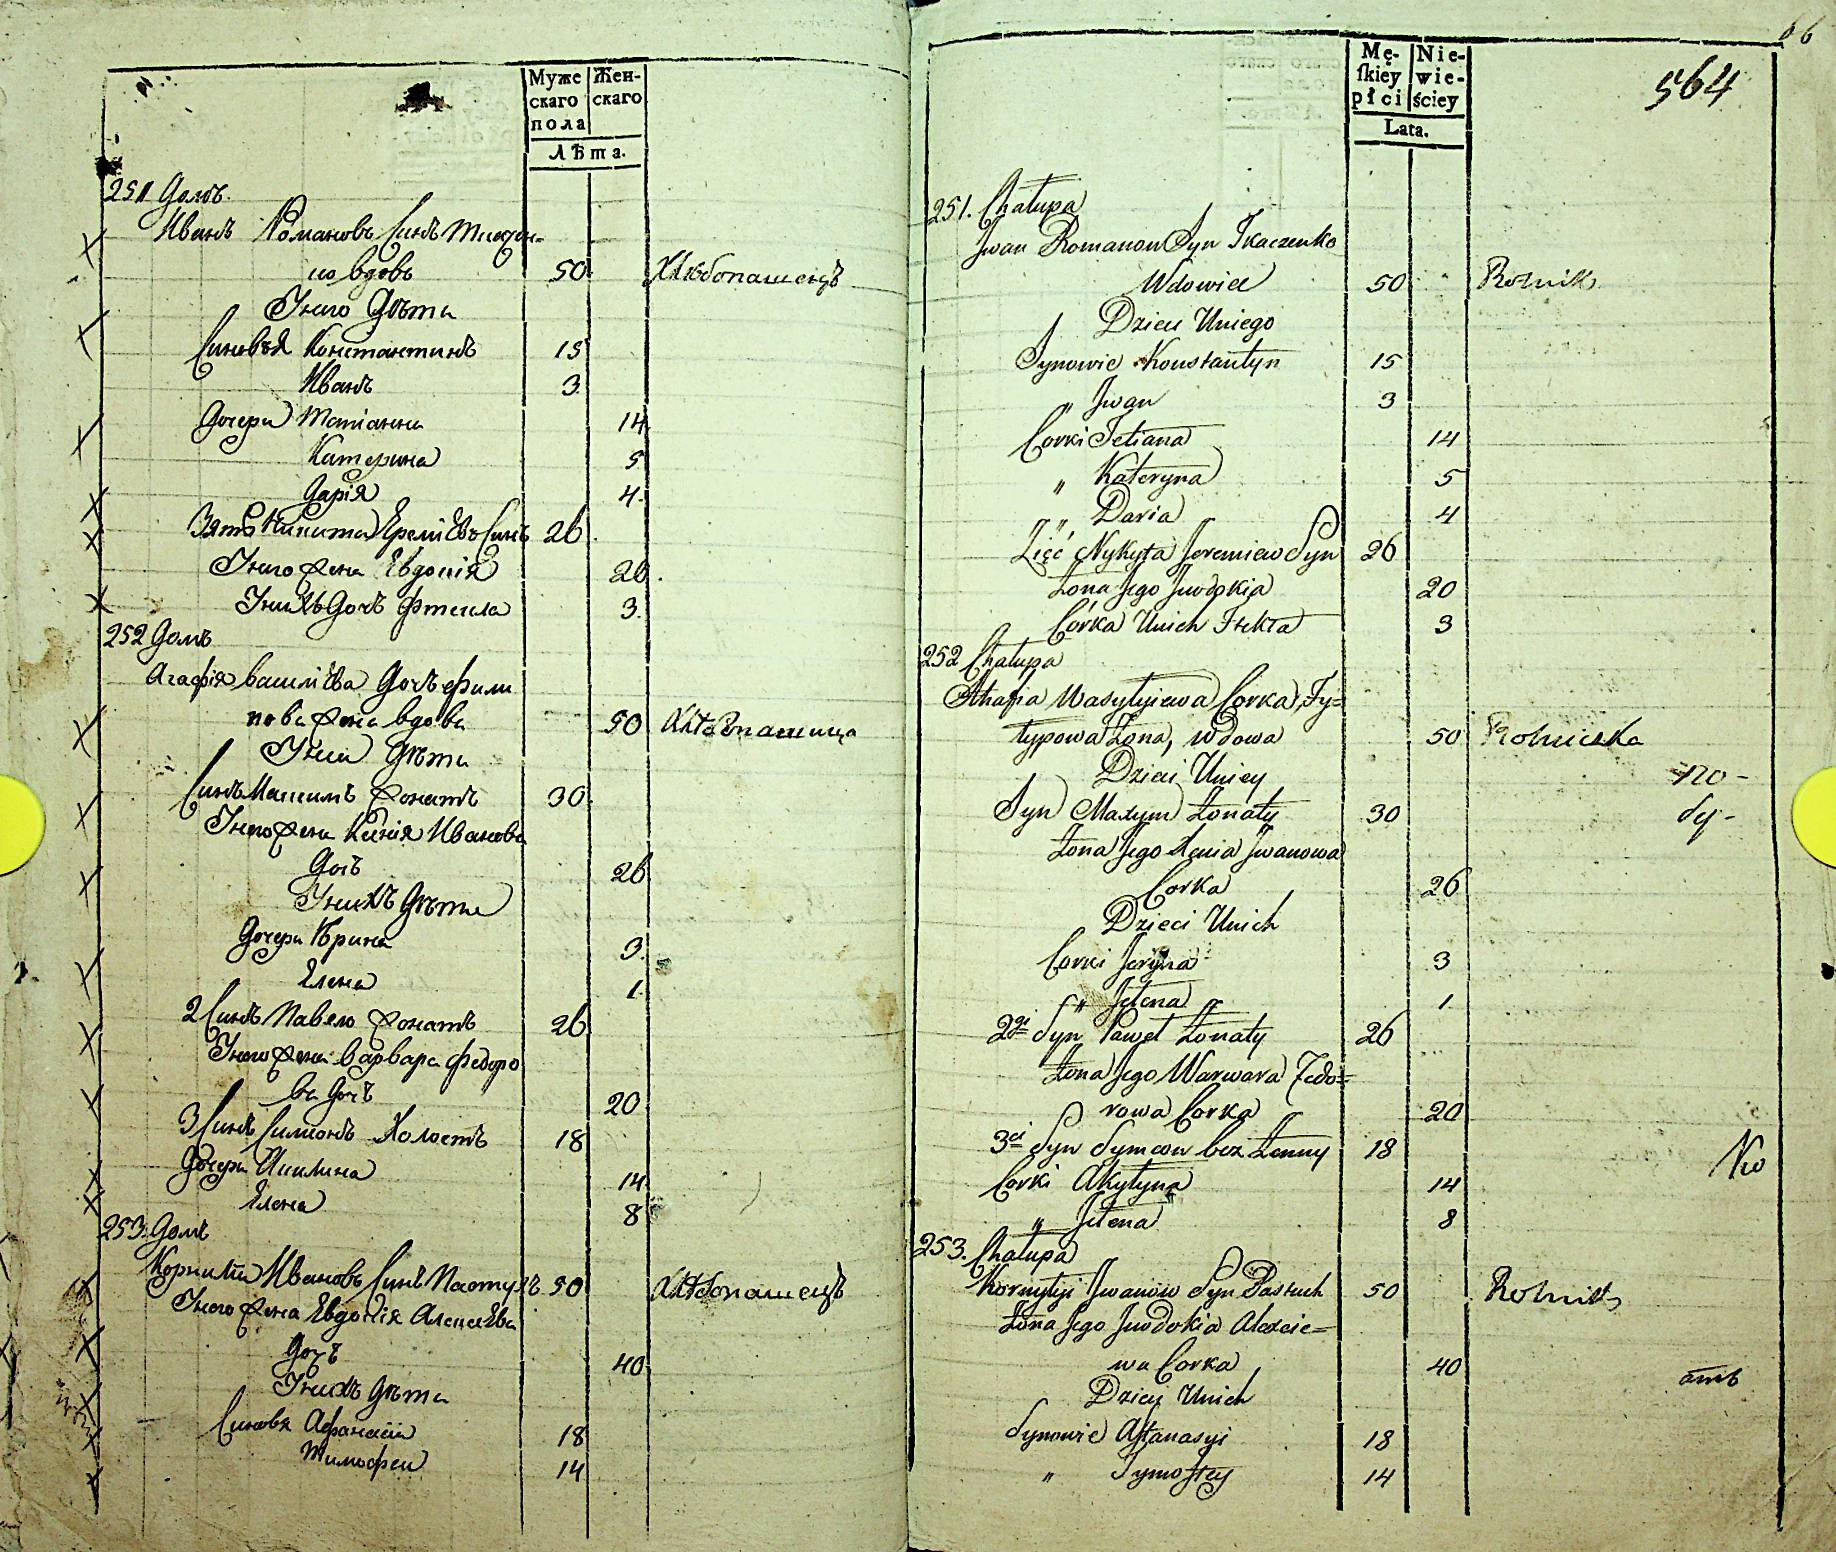 Муже
скаго
пола
Жен-
скаго
Лѣта.
251 Домъ.
Иванъ Романовъ Синъ Ткачен-
ко вдовъ 50 Хлѣбопашецъ
У него Дѣти
Синовья Константинъ 15
Иванъ 3
Дочери Татіанна 14
Катерина 5
Дарія 4
Зять Никита Ереміевъ Синъ 26
У него жена Евдокія 20
У нихъ Дочъ Фтекла 3
252 Домъ
Агафія Василіева Дочъ Фили
пова жена вдова 50 Хлѣбопашица
У ней Дѣти
Синъ Максимъ жонатъ 30
У него жена Ксенія Иванова
Дочъ 26
У нихъ Дѣти
Дочери Ѣрина 3
Елена 1
2 Синъ Павело жонатъ 26
У него жена Варвара Федоро
ва Дочъ 20
3 Синъ Симионъ Холостъ 18
Дочери Акилина 14
Елена 8
253 Домъ
Корнилій Ивановъ Синъ Пастухъ 50 Хлѣбопашецъ
У него жена Евдокія Алексѣева
Дочъ 40
У нихъ Дѣти
Синовя Афанасій 18
Тимофей 14
66
564
Mę-
ſkiey
płci
Nie-
wie-
ściey
Lata.
251. Chałupa
Jwan Romanow Syn Tkaczenko
Wdowiec 50 Rolnik
Dzieci Uniego
Synowie Konstantyn 15
" Jwan 3
Corki Tetiana 14
" Kateryna 5
" Daria 4
Zięć Nykyta Jeremiew Syn 26
Żona Jego Jwdokia 20
Córka Unich Ftekła 3
252 Chałupa
Ahafia Wasylyiewa Corka, Fy=
łypowa Żona, wdowa 50 Rolniczka
Dzieci Uniey
по-
Syn Maxym Żonaty 30
бу-
Żona Jego Xenia Jwanowa
Corka 26
Dzieci Unich
Corki Jeryna 3
" Jełena 1
2gi Syn Paweł Żonaty 26
Żona Jego Warwara Fedo=
rowa Corka 20
3ci Syn Symeon bez Żenny 18
Corki Akyłyna 14
" Jełena 8
253. Chałupa
Kornyłyi Jwanow Syn Pastuch 50 Rolnik
Żona Jego Jwdokia Alexie=
wa Corka 40
Dzieci Unich
Synowie Aftanasyi 18
" Tymoftey 14